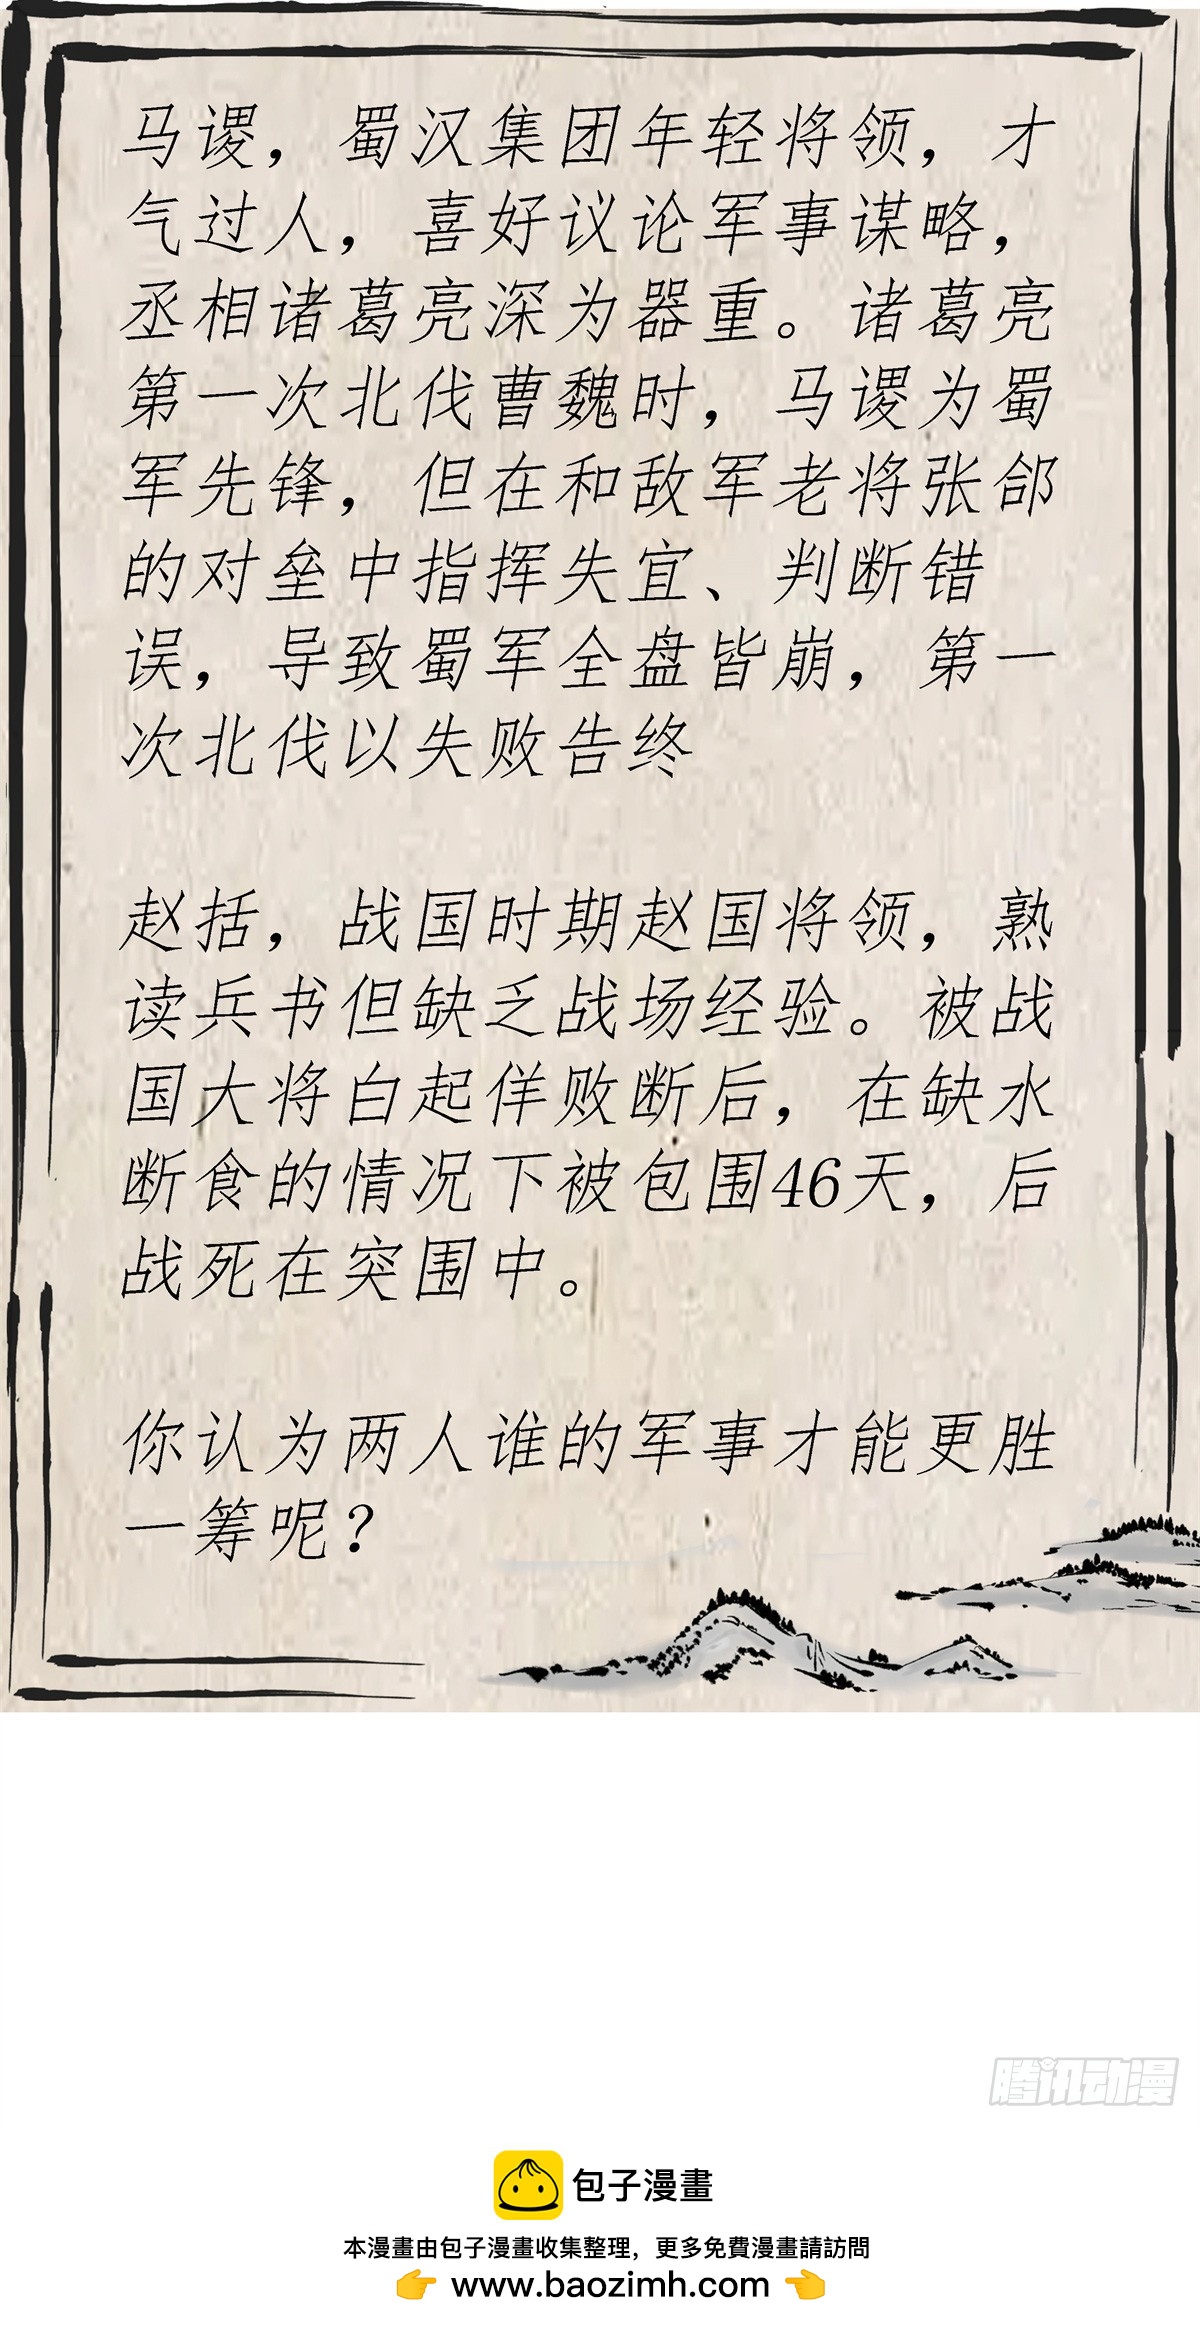 马谡，蜀汉集团年轻将领，才
气过人，喜好议论军事谋略，
丞相诸葛亮深为器重。诸葛亮
第一次北伐曹魏时，马谡为蜀
军先锋，但在和敌军老将张郃
的对垒中指挥失宜、判断错
误，导致蜀军全盘皆崩，第一
次北伐以失败告终
赵括，战国时期赵国将领，熟
读兵书但缺乏战场经验。被战
国大将白起佯败断后，在缺水
断食的情况下被包围46天，后
战死在突围中。
你认为两人谁的军事才能更胜
一筹呢？
腾讯动漫
包子漫畫
本漫畫由包子漫畫收集整理，更多免費漫畫請訪問
👉 www.baozimh.com 👈